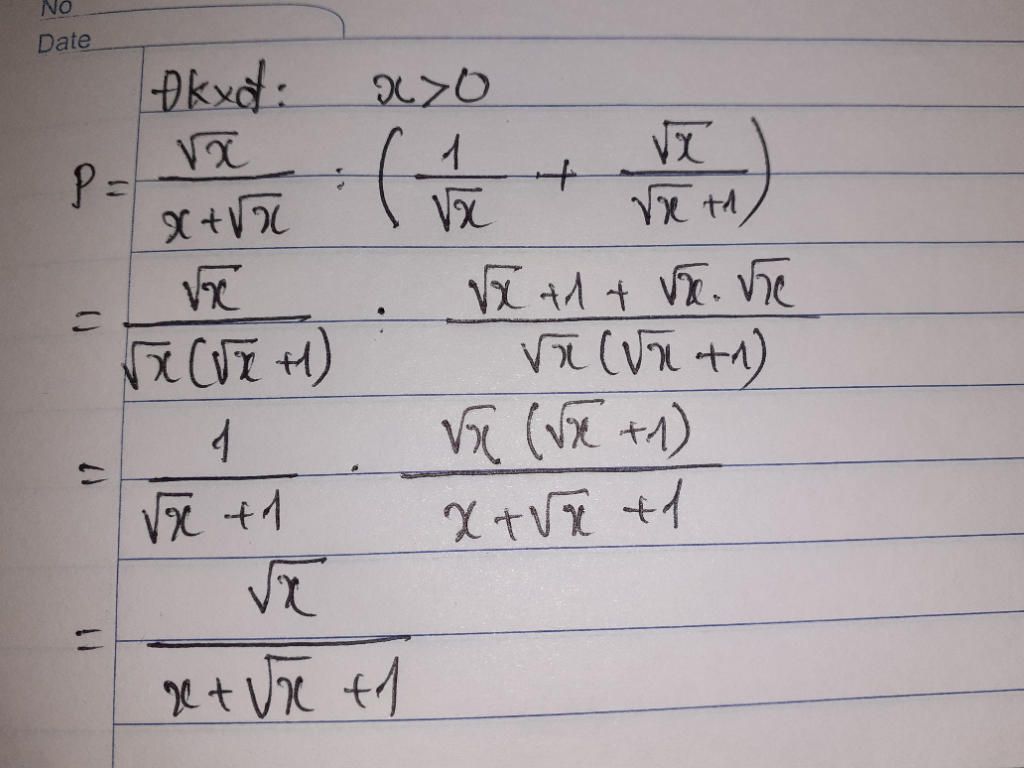 No
Date
Đkxđ: x>0
P = √x / (x+√x) : (1/√x + √x/(√x+1))
= √x / (√x(√x+1)) : (√x+1+√x.√x) / (√x(√x+1))
= 1/(√x+1) . √x(√x+1) / (x+√x+1)
= √x / (x+√x+1)